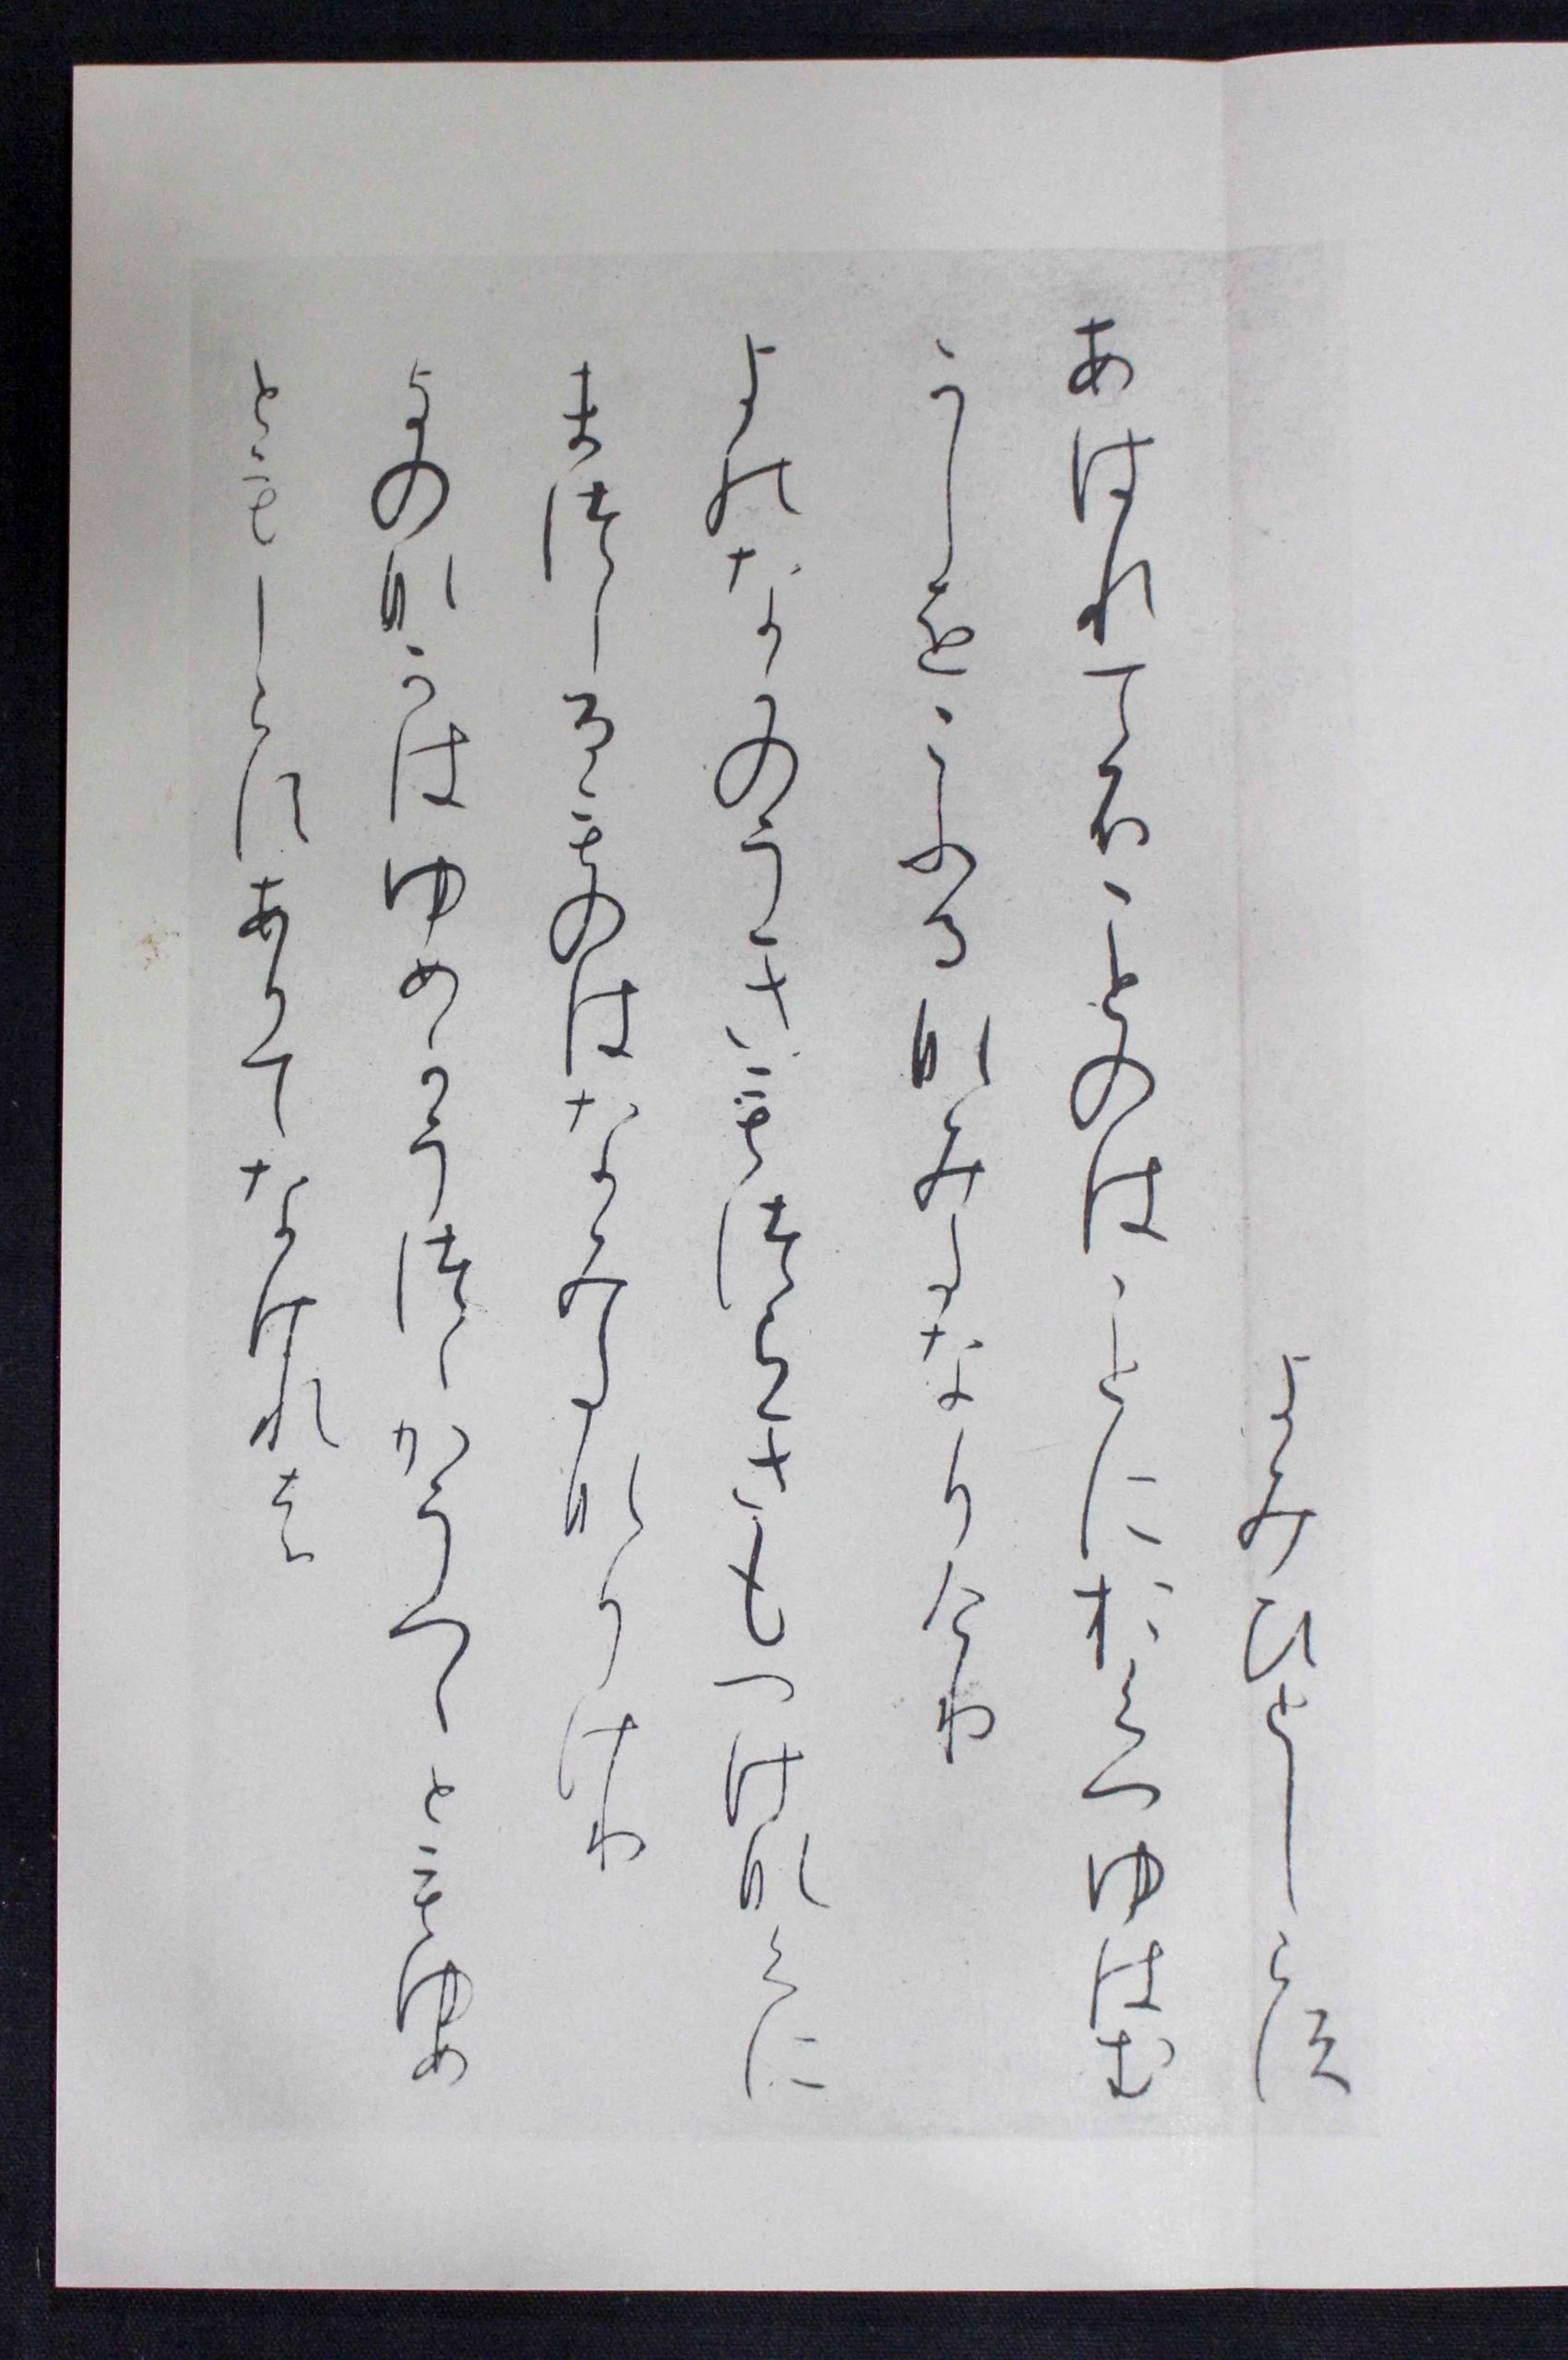 よみひとしらす
あはれてふことのはことにおくつゆはむ
かしをこふるなみたなりけり
よのなかのうきもつらきもつけなくに
まつしるものはなみたなりけり
よのなかはゆめかうつつかうつつともゆめ
ともしらすありてなけれは